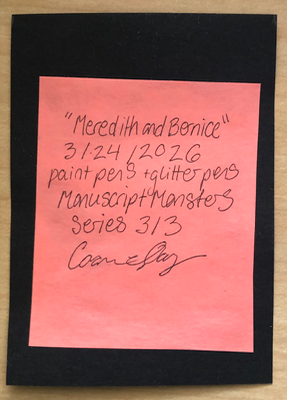 "Meredith and Bernice"
3/24/2026
paint pens + glitter pens
Manuscript Monsters
Series 3/3